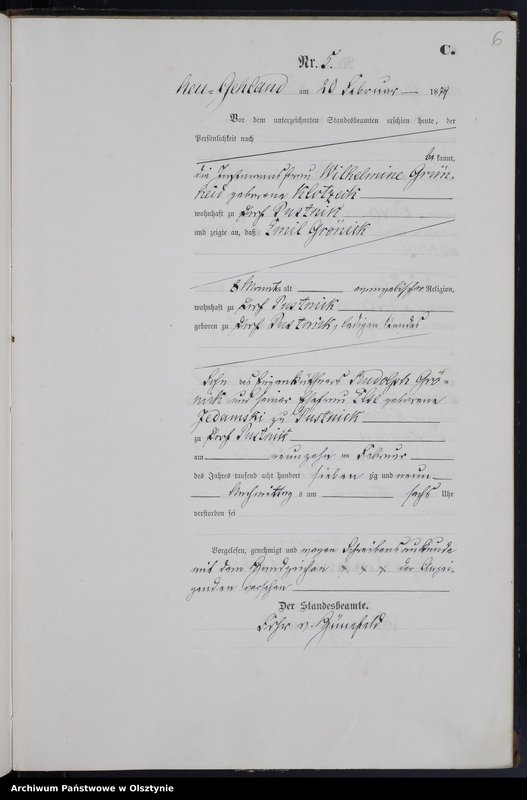 6
C.
Nr. 5.
Neu-Gehland am 20 Februar 1879
Vor dem unterzeichneten Standesbeamten erschien heute, der
Persönlichkeit nach
be kannt,
die Instmannsfrau Wilhelmine Grün-
heid geborene Klotzeck
wohnhaft zu Dorf Pustnick
und zeigte an, daß Emil Gronick
8 Monate alt evangelischer Religion,
wohnhaft zu Dorf Pustnick
geboren zu Dorf Pustnick, ledigen Standes
Sohn des Eigenkäthners Rudolph Gro-
nick und seiner Ehefrau geborene
Jedamski zu Pustnick
zu Dorf Pustnick
am neunzehn ten Februar
des Jahres tausend acht hundert sieben zig und neun
Nachmittag s um sechs Uhr
verstorben sei
Vorgelesen, genehmigt und wegen Schreibensunkunde
mit dem Handzeichen x x x der Anzei-
genden versehen
Der Standesbeamte.